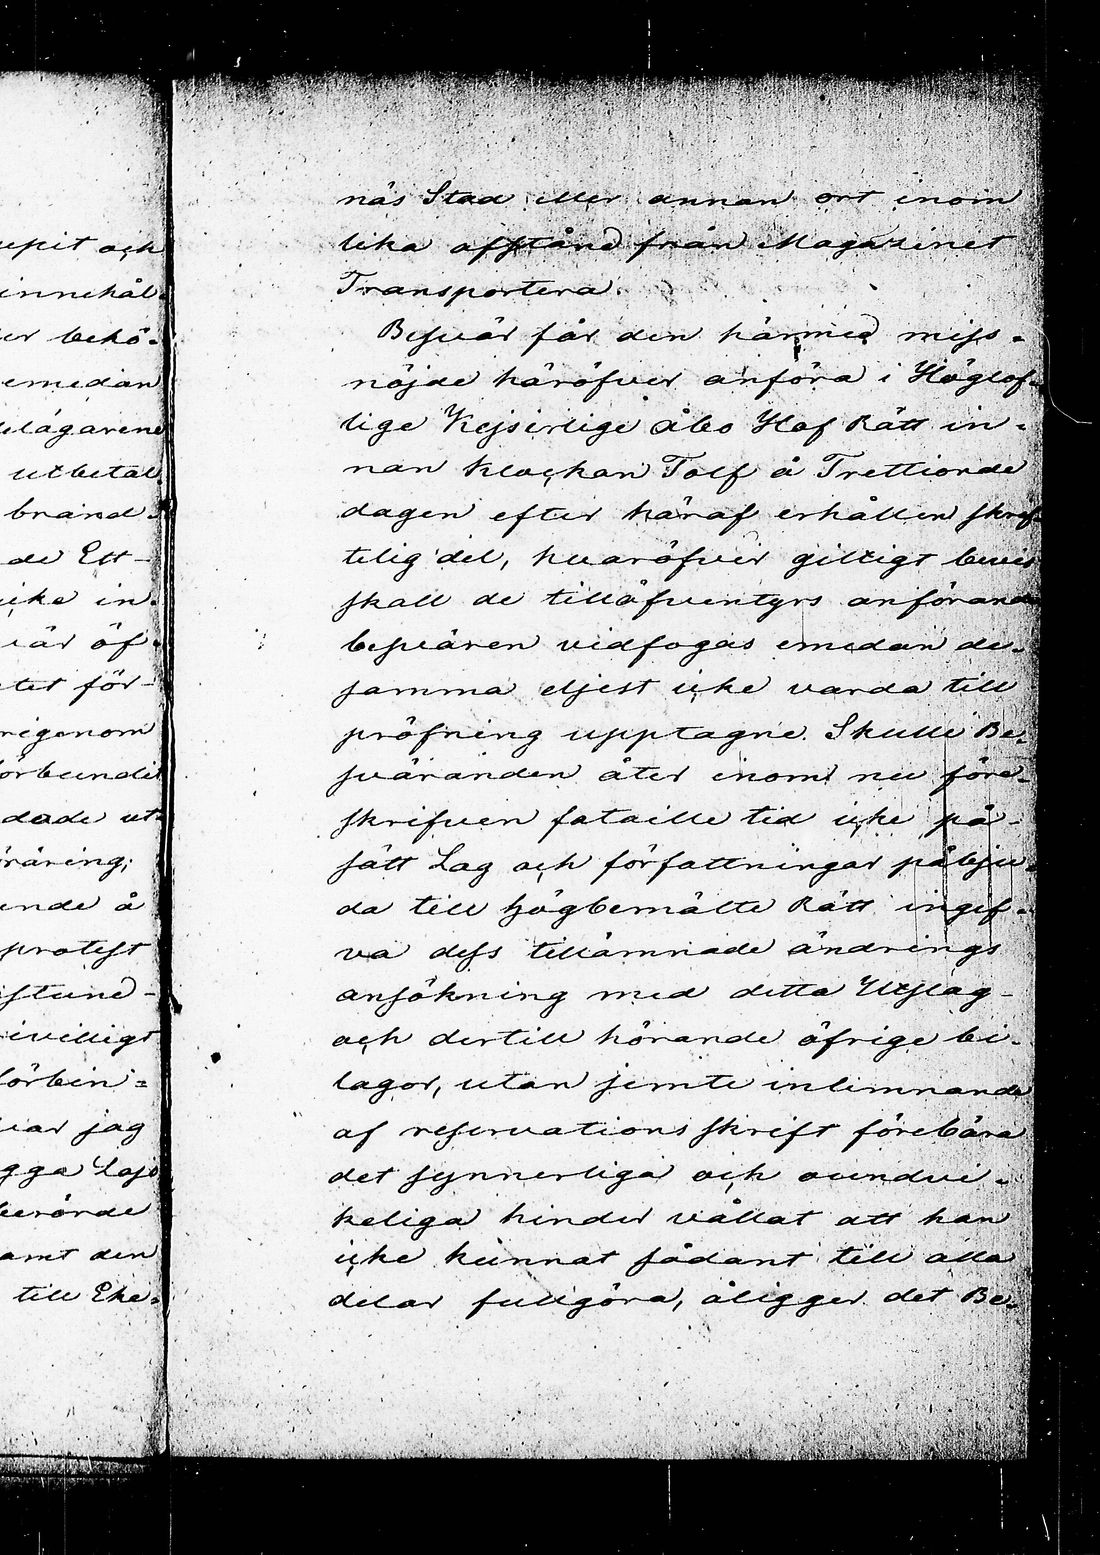 upit och
innehål-
er behö-
emedan
elägarene
utbetal
brand-
de Ett-
icke in-
vär öf-
tet för-
rigenom
förbundit
dade ut-
räring;
ende å
protest
stund-
ivilligt
förbin-
var jag
gga Lojo
berörde
amt den
till Eke-
näs Stad eller annan ort inom
lika afstånd från Magazinet
Transportera.
Besvär får den härmed miss-
nöjde häröfver anföra i Höglof-
lige Kejserlige Åbo Hof Rätt in-
nan klockan Tolf å Trettionde
dagen efter häraf erhållen skrif-
telig del, hvaröfver giltigt bevis
skall de tilläfventyrs anförande
besvären vidfogas emedan de-
samma eljest icke varda till
pröfning upptagne. Skulle Be-
sväranden åter inom nu före-
skrifven fataille tid icke på-
sätt Lag och författningar påbju-
da till högbemälte Rätt ingif-
va dess tillämnade ändrings
ansökning med detta Utslag-
och dertill hörande öfrige bi-
lagor, utan jemte inlemnande
af reservationsskrift förebära
det synnerliga och oundvi-
keliga hinder vållat att han
icke kunnat sådant till alla
delar fullgöra, åligger det Be-